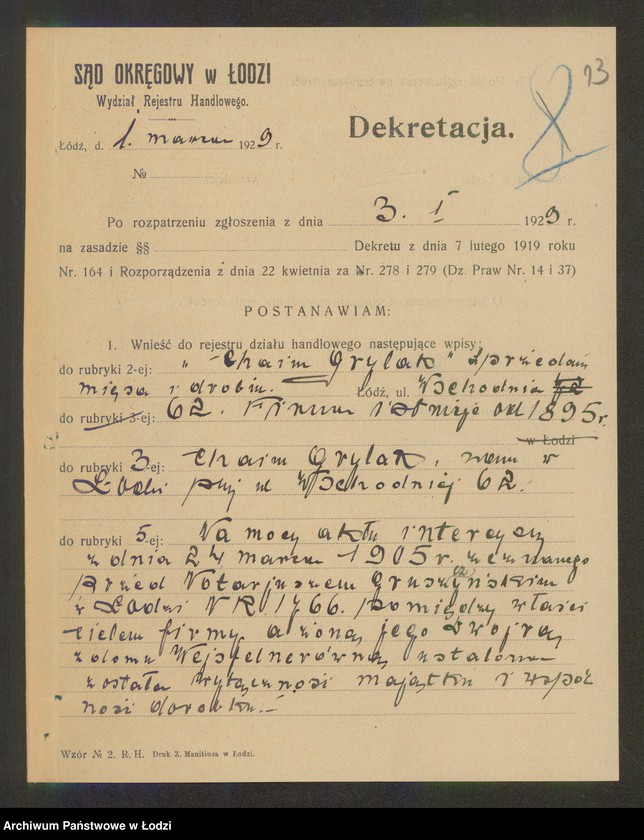 13
8
SĄD OKRĘGOWY w ŁODZI
Wydział Rejestru Handlowego.
Dekretacja.
Łódź, d. 1. marca 1929 r.
№
Po rozpatrzeniu zgłoszenia z dnia 3. I 1929 r.
na zasadzie §§ Dekretu z dnia 7 lutego 1919 roku
Nr. 164 i Rozporządzenia z dnia 22 kwietnia za Nr. 278 i 279 (Dz. Praw Nr. 14 i 37)
POSTANAWIAM:
1. Wnieść do rejestru działu handlowego następujące wpisy:
do rubryki 2-ej: „Chaim Grylak" Sprzedaż
mięsa i drobiu. Łódź, ul. Wschodnia
do rubryki 3-ej: 62. Firma istnieje od 1895 r.
w Łodzi
do rubryki 3-ej: Chaim Grylak, zam w
Łodzi przy ul Wschodniej 62.
do rubryki 5-ej: Na mocy aktu intercyzy
z dnia 24 marca 1905 r. zeznanego
przed Notarjuszem Gruszczyńskim
w Łodzi NR 1766. pomiędzy właści
cielem firmy, a żoną jego Dwojrą
z domu ustalona
została wyłączność majątku i wspól
ność dorobku.—
Wzór № 2. R. H. Druk Z. Manitiusa w Łodzi.
Archiwum Państwowe w Łodzi